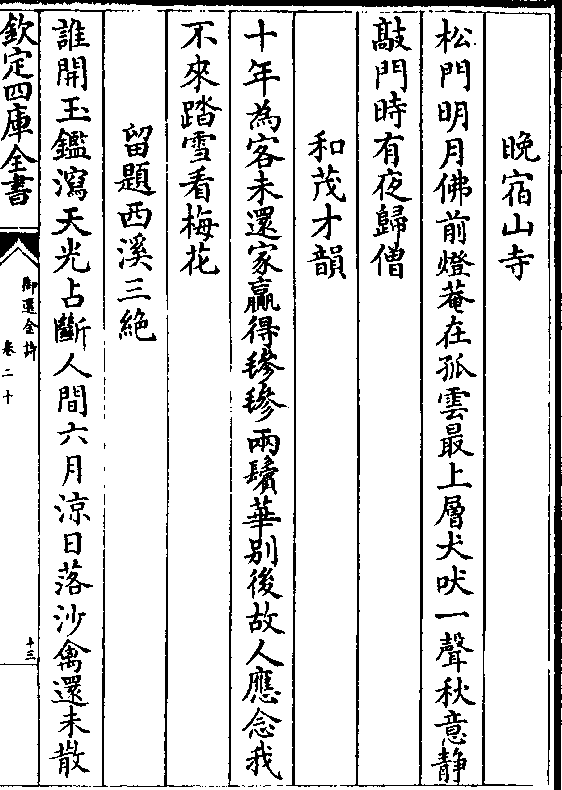 晚宿山寺
松門明月佛前燈菴在孤雲最上層犬吠一聲秋意靜
敲門時有夜歸僧
和茂才韻
十年為客未還家贏得毿毿兩鬢華别後故人應念我
不來踏雪看梅花
留題西溪三絶
誰開玉鑑瀉天光占斷人間六月涼日落沙禽還未散
欽定四庫全書
御選金詩
卷二十
十三